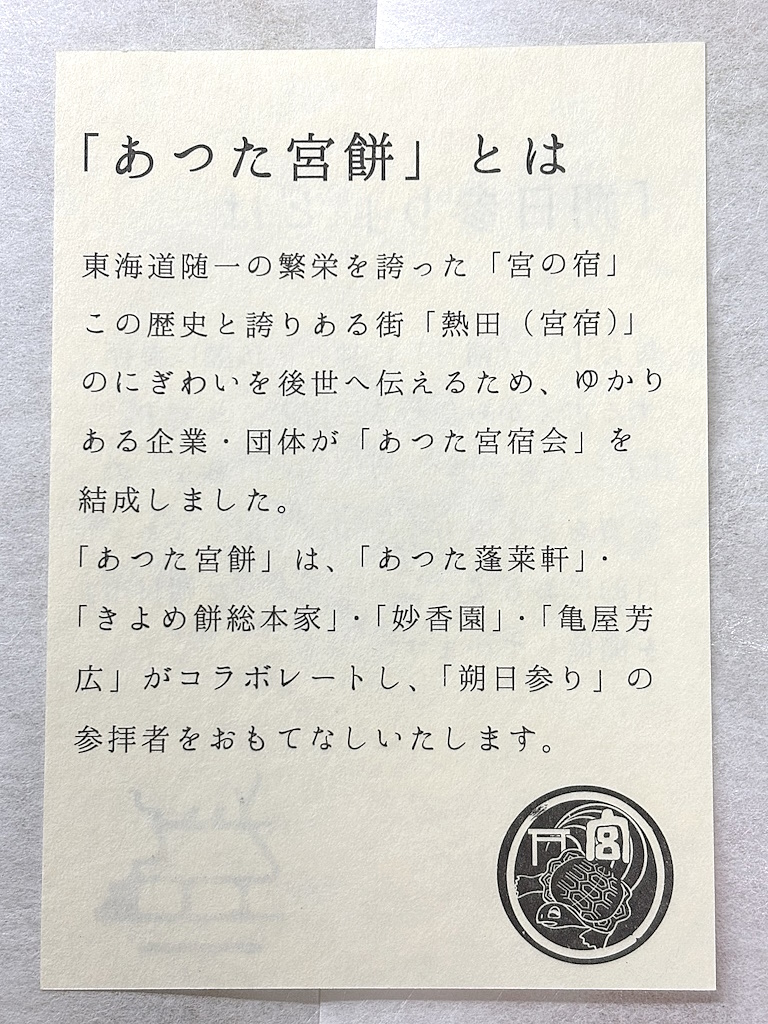 「あつた宮餅」とは
東海道随一の繁栄を誇った「宮の宿」
この歴史と誇りある街「熱田（宮宿）」
のにぎわいを後世へ伝えるため、ゆかり
ある企業・団体が「あつた宮宿会」を
結成しました。
「あつた宮餅」は、「あつた蓬莱軒」・
「きよめ餅総本家」・「妙香園」・「亀屋芳
広」がコラボレートし、「朔日参り」の
参拝者をおもてなしいたします。
宮